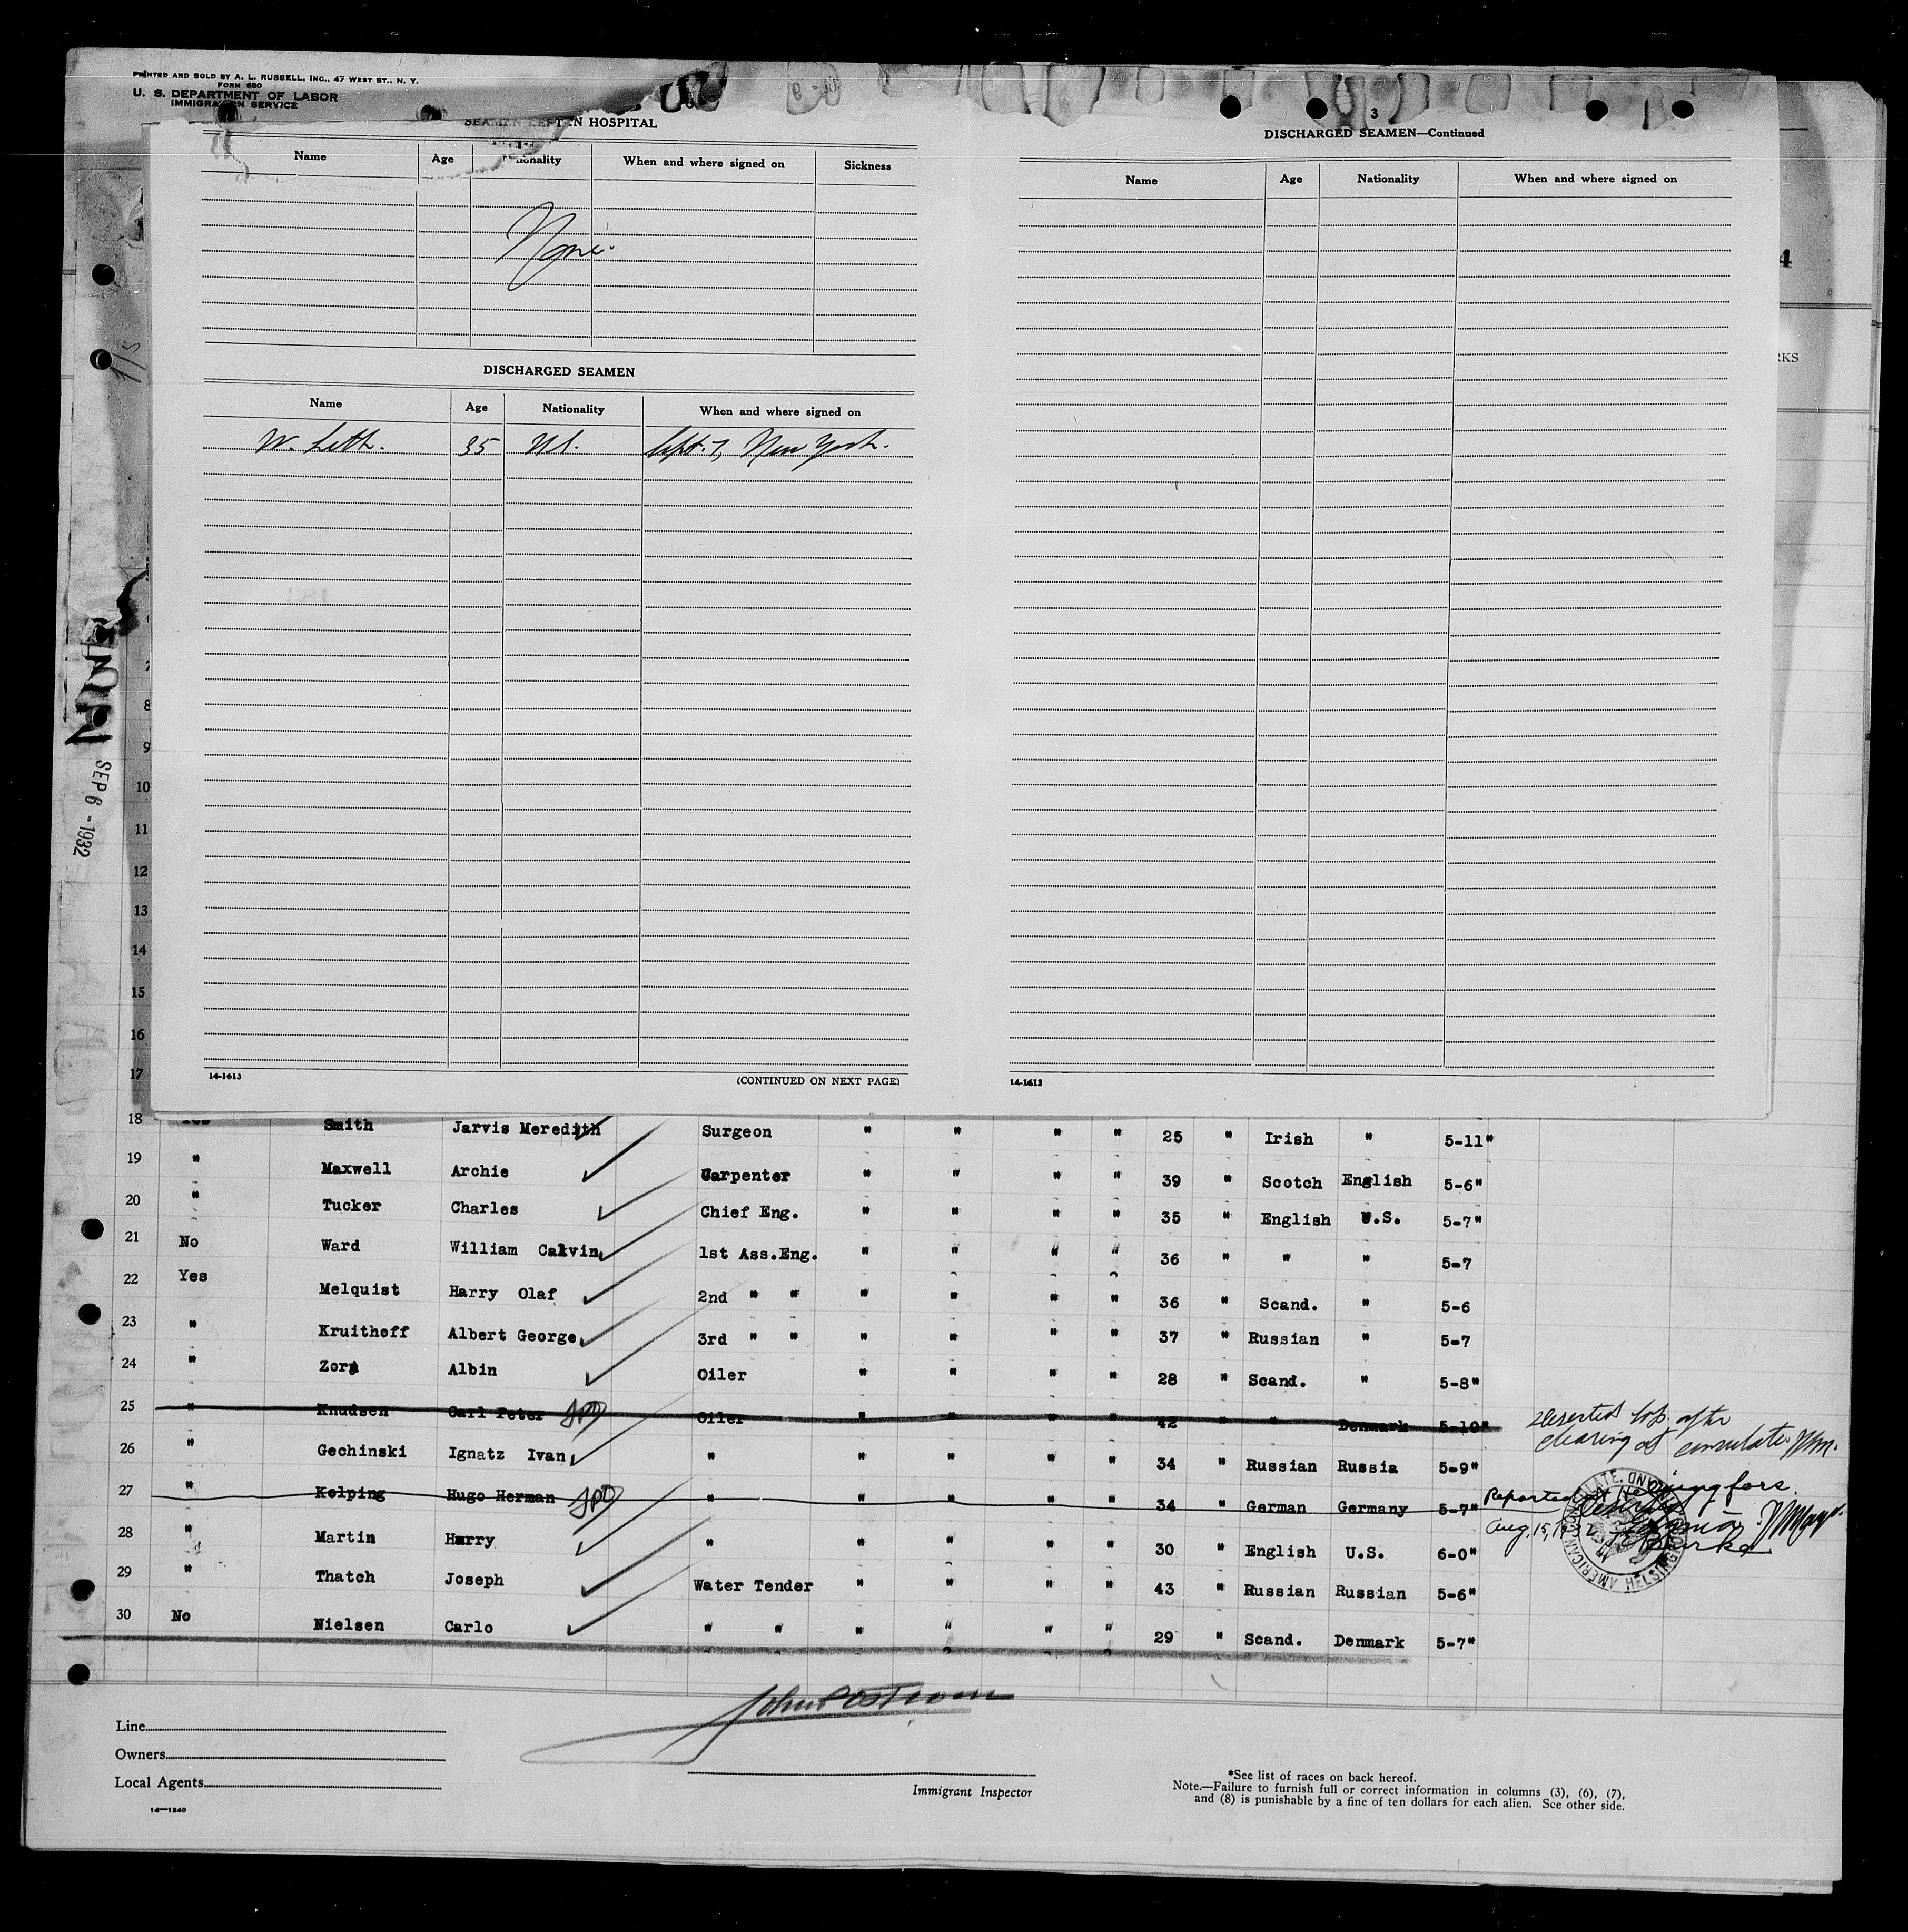 PRINTED AND SOLD BY A. L. RUSSELL, INC., 47 WEST ST., N. Y.
FORM 680
U. S. DEPARTMENT OF LABOR
IMMIGRATION SERVICE
SEAMEN LEFT IN HOSPITAL
Name Age Nationality When and where signed on Sickness
None
DISCHARGED SEAMEN
Name Age Nationality When and where signed on
W. Leth. 35 Sept. 7, New York.
14-1613 (CONTINUED ON NEXT PAGE)
3
DISCHARGED SEAMEN—Continued
Name Age Nationality When and where signed on
14-1613
4
RKS
SEP 6 - 1932
8
9
10
11
12
13
14
15
16
17
18 Yes Smith Jarvis Meredith Surgeon " " " " 25 " Irish " 5-11"
19 " Maxwell Archie Carpenter " " " " 39 " Scotch English 5-6"
20 " Tucker Charles Chief Eng. " " " " 35 " English U.S. 5-7"
21 No Ward William Calvin 1st Ass.Eng. " " " " 36 " " " 5-7
22 Yes Melquist Harry Olaf 2nd " " " " " " 36 " Scand. " 5-6
23 " Kruithoff Albert George 3rd " " " " " " 37 " Russian " 5-7
24 " Zora Albin Oiler " " " " 28 " Scand. " 5-8"
25 " Knudsen Carl Peter Oiler " " " " 42 " " Denmark 5-10" Deserted after
clearing at consulate
26 " Gechinski Ignatz Ivan " " " " " 34 " Russian Russia 5-9"
27 " Kelping Hugo Herman " " " " " 34 " German Germany 5-7" Reported at Helsingfors.
Aug. 15, 1932
AMERICAN CONSULATE
28 " Martin Harry " " " " " 30 " English U.S. 6-0"
29 " Thatch Joseph Water Tender " " " " 43 " Russian Russian 5-6"
30 No Nielsen Carlo " " " " " " 29 " Scand. Denmark 5-7"
Line
Owners
Local Agents
14—1240
Immigrant Inspector
*See list of races on back hereof.
Note.—Failure to furnish full or correct information in columns (3), (6), (7),
and (8) is punishable by a fine of ten dollars for each alien. See other side.